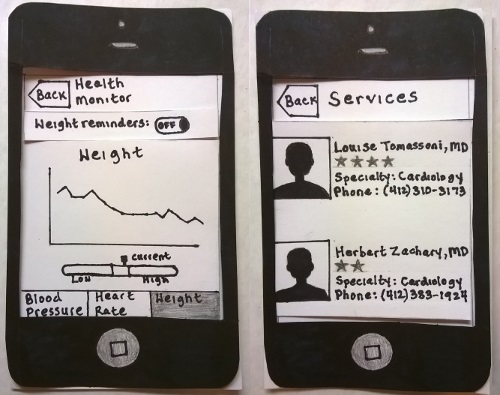 Back Health Monitor
Weight reminders: OFF
Weight
current
Low High
Blood Pressure
Heart Rate
Weight
Back Services
Louise Tomassoni, MD
Specialty: Cardiology
Phone: (412)310-3173
Herbert Zachary, MD
Specialty: Cardiology
Phone: (412)383-1924